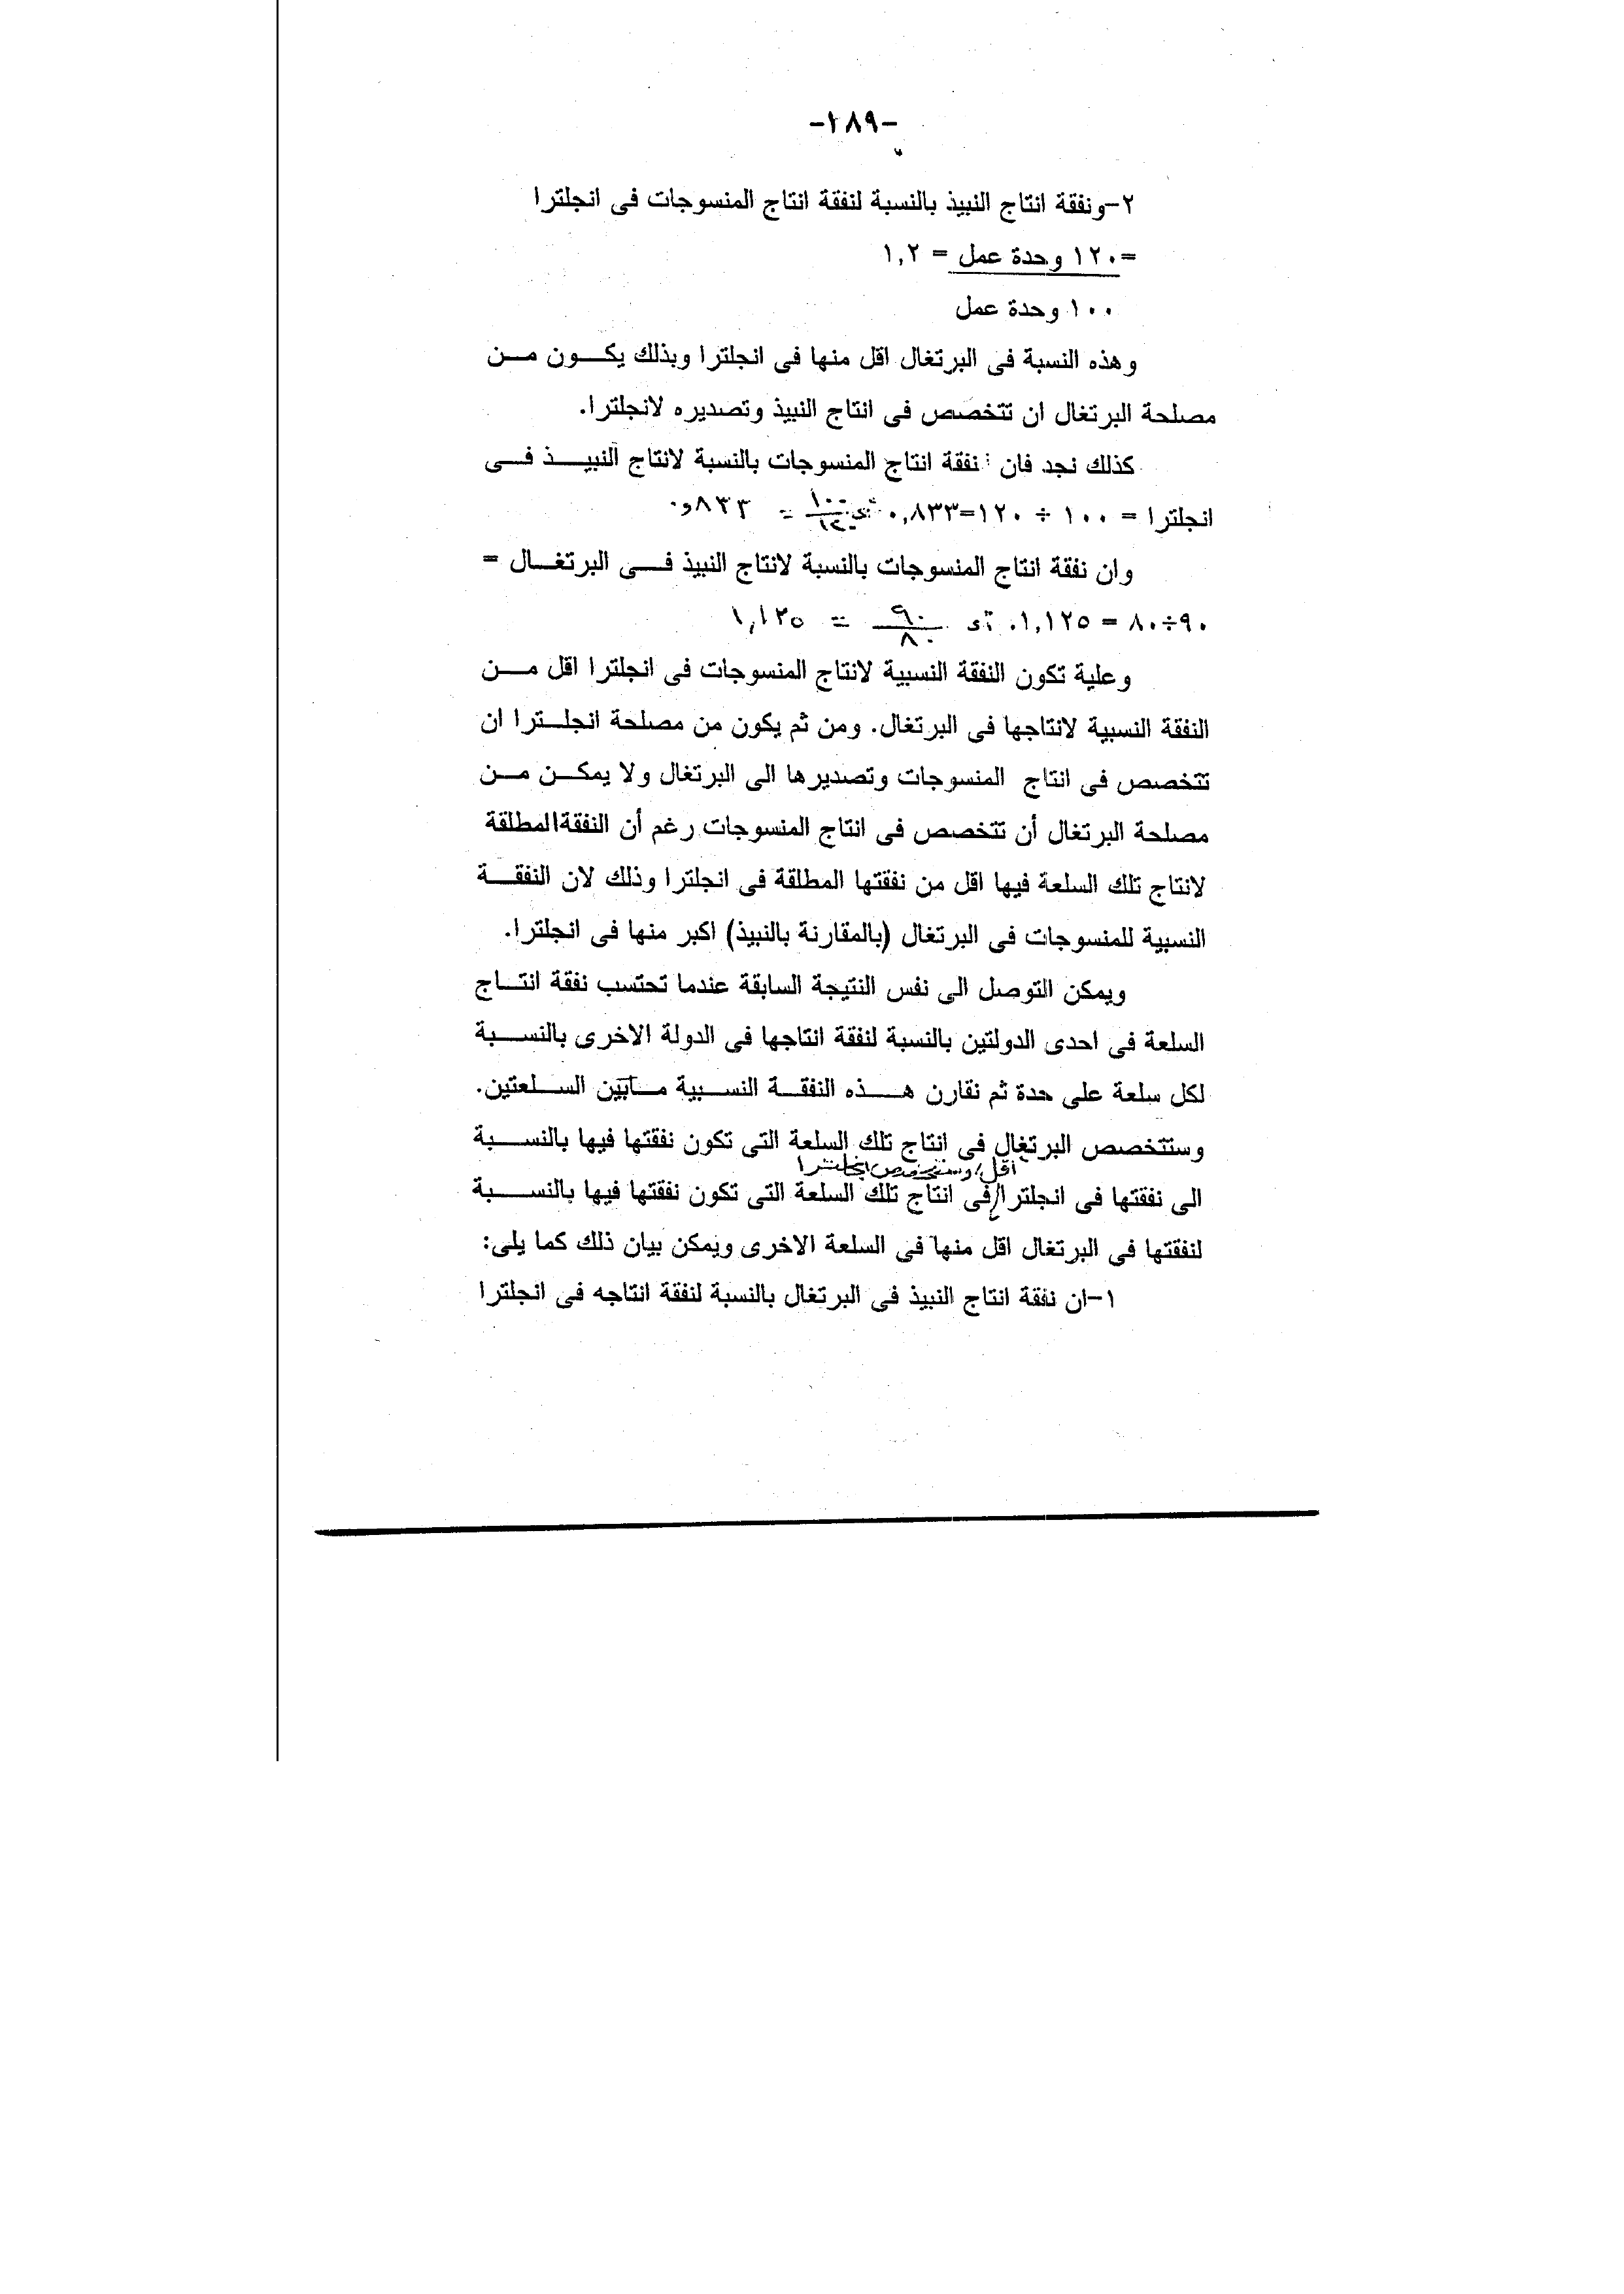 -١٨٩-
٢-ونفقة انتاج النبيذ بالنسبة لنفقة انتاج المنسوجات فى انجلترا
=١٢٠ وحدة عمل = ١,٢
١٠٠ وحدة عمل
وهذه النسبة فى البرتغال اقل منها فى انجلترا وبذلك يكون من
مصلحة البرتغال ان تتخصص فى انتاج النبيذ وتصديره لانجلترا.
كذلك نجد فان نفقة انتاج المنسوجات بالنسبة لانتاج النبيذ فى
انجلترا = ١٠٠ ÷ ١٢٠=٠,٨٣٣ أى ١٠٠/١٢٠ = ٨٣٣و٠
وان نفقة انتاج المنسوجات بالنسبة لانتاج النبيذ فى البرتغال =
٩٠÷٨٠ = ١,١٢٥. أى ٩٠/٨٠ = ١,١٢٥
وعلية تكون النفقة النسبية لانتاج المنسوجات فى انجلترا اقل من
النفقة النسبية لانتاجها فى البرتغال. ومن ثم يكون من مصلحة انجلترا ان
تتخصص فى انتاج المنسوجات وتصديرها الى البرتغال ولا يمكن من
مصلحة البرتغال أن تتخصص فى انتاج المنسوجات رغم أن النفقة المطلقة
لانتاج تلك السلعة فيها اقل من نفقتها المطلقة فى انجلترا وذلك لان النفقة
النسبية للمنسوجات فى البرتغال (بالمقارنة بالنبيذ) اكبر منها فى انجلترا.
ويمكن التوصل الى نفس النتيجة السابقة عندما تحتسب نفقة انتاج
السلعة فى احدى الدولتين بالنسبة لنفقة انتاجها فى الدولة الاخرى بالنسبة
لكل سلعة على حدة ثم نقارن هذه النفقة النسبية مابين السلعتين.
وستتخصص البرتغال فى انتاج تلك السلعة التى تكون نفقتها فيها بالنسبة
اقل، وستتخصص انجلترا
الى نفقتها فى انجلترا/فى انتاج تلك السلعة التى تكون نفقتها فيها بالنسبة
لنفقتها فى البرتغال اقل منها فى السلعة الاخرى ويمكن بيان ذلك كما يلى:
١-ان نفقة انتاج النبيذ فى البرتغال بالنسبة لنفقة انتاجه فى انجلترا